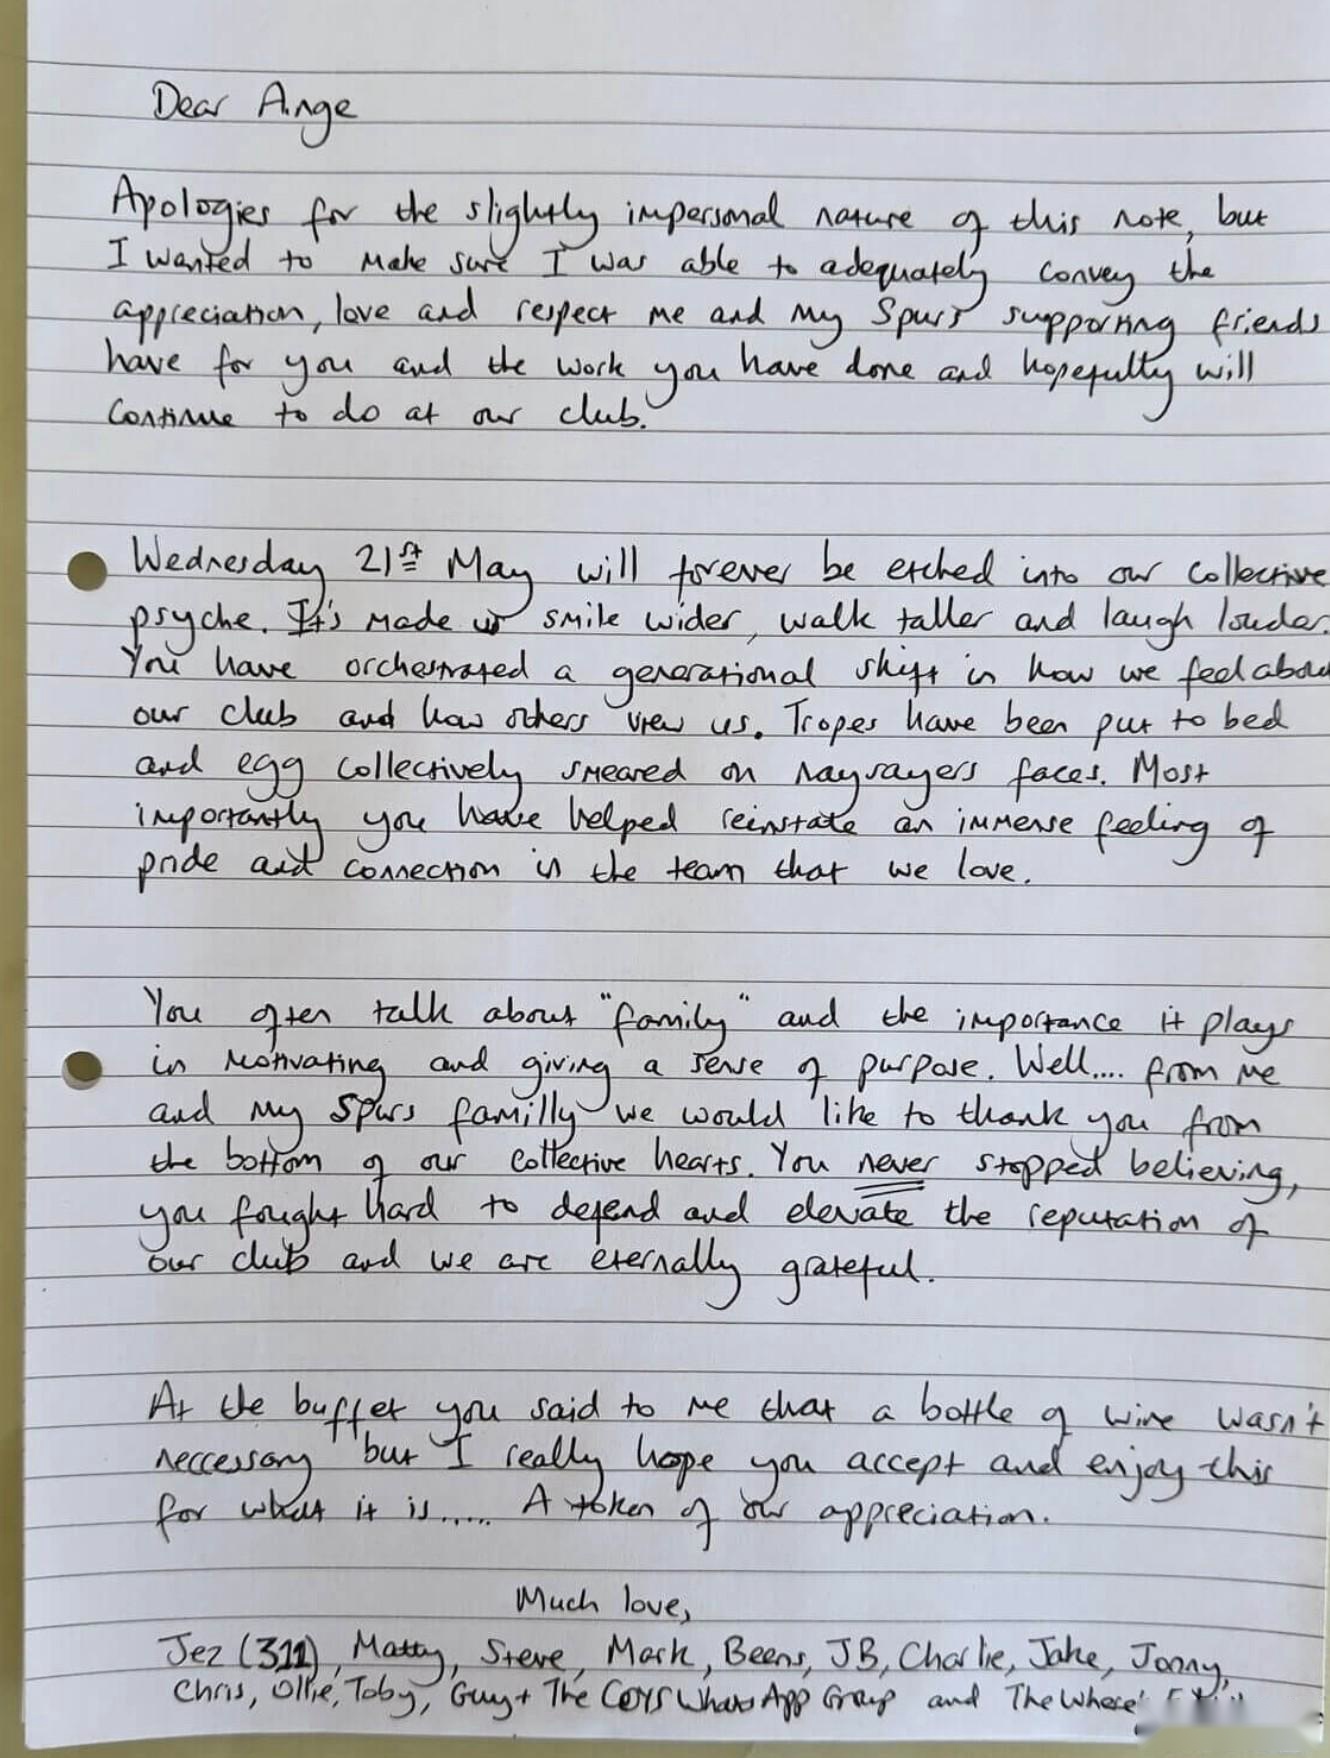 Dear Ange
Apologies for the slightly impersonal nature of this note, but
I wanted to make sure I was able to adequately convey the
appreciation, love and respect me and my Spurs supporting friends
have for you and the work you have done and hopefully will
continue to do at our club.
Wednesday 21st May will forever be etched into our collective
psyche. It's made us smile wider, walk taller and laugh louder.
You have orchestrated a generational shift in how we feel abou
our club and how others view us. Tropes have been put to bed
and egg collectively smeared on naysayers faces. Most
importantly you have helped reinstate an immense feeling of
pride and connection in the team that we love.
You often talk about "family" and the importance it plays
in motivating and giving a sense of purpose. Well.... from me
and my Spurs familly we would like to thank you from
the bottom of our collective hearts. You never stopped believing,
you fought hard to defend and elevate the reputation of
our club and we are eternally grateful.
At the buffet you said to me that a bottle of wine wasn't
neccessary but I really hope you accept and enjoy this
for what it is..... A token of our appreciation.
Much love,
Jez (311), Matty, Steve, Mark, Beens, JB, Charlie, Jake, Jonny,
Chris, Ollie, Toby, Guy + The COYS WhatsApp Group and The